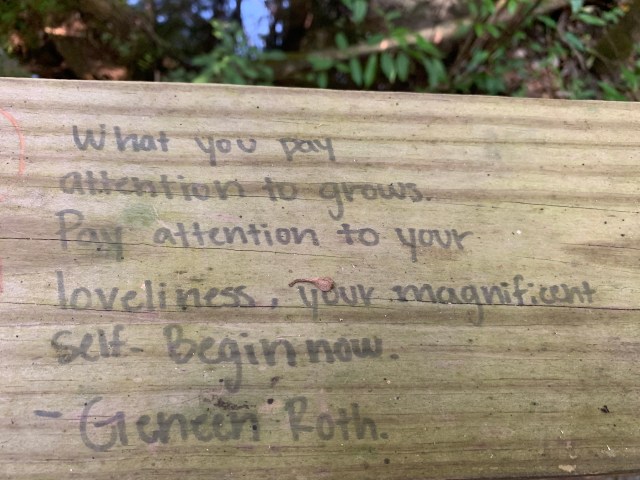 What you pay
attention to grows.
Pay attention to your
loveliness, your magnificent
self. Begin now.
- Geneen Roth.